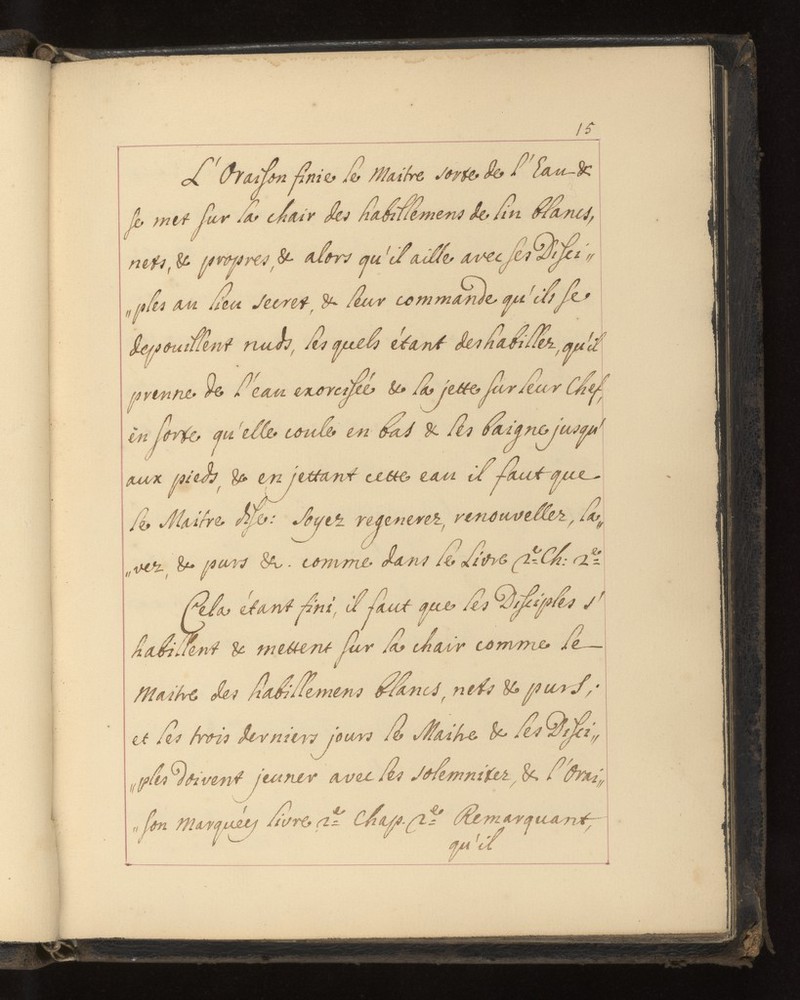 15
L'Oraison finie le Maitre sorte de l'Eau &
se met sur la chair des habillemens de lin blancs,
nets, & propres, & alors qu'il aille avec ses Disci„
„ples au lieu secret, & leur commande qu'ils se
depouillent nuds, les quels étant deshabillez, qu'il
prenne de l'eau exorcisée & la jette sur leur Chef,
en sorte qu'elle coule en bas & les baigne jusqu'
aux pieds, & en jettant cette eau il faut que
le Maitre dise: soyez regenerez, renouvellez, la„
„vez, & purs &. comme dans le Livre 2e Ch: 2e
Cela étant fini, il faut que les Disciples s'
habillent & mettent sur la chair comme le
Maitre des habillemens blancs, nets & purs;
et les trois derniers jours le Maitre & les Disci„
„ples doivent jeuner avec les solemnitez, & l'Orai„
„son marquéez livre 2e Chap. 2e Remarquant,
qu'il